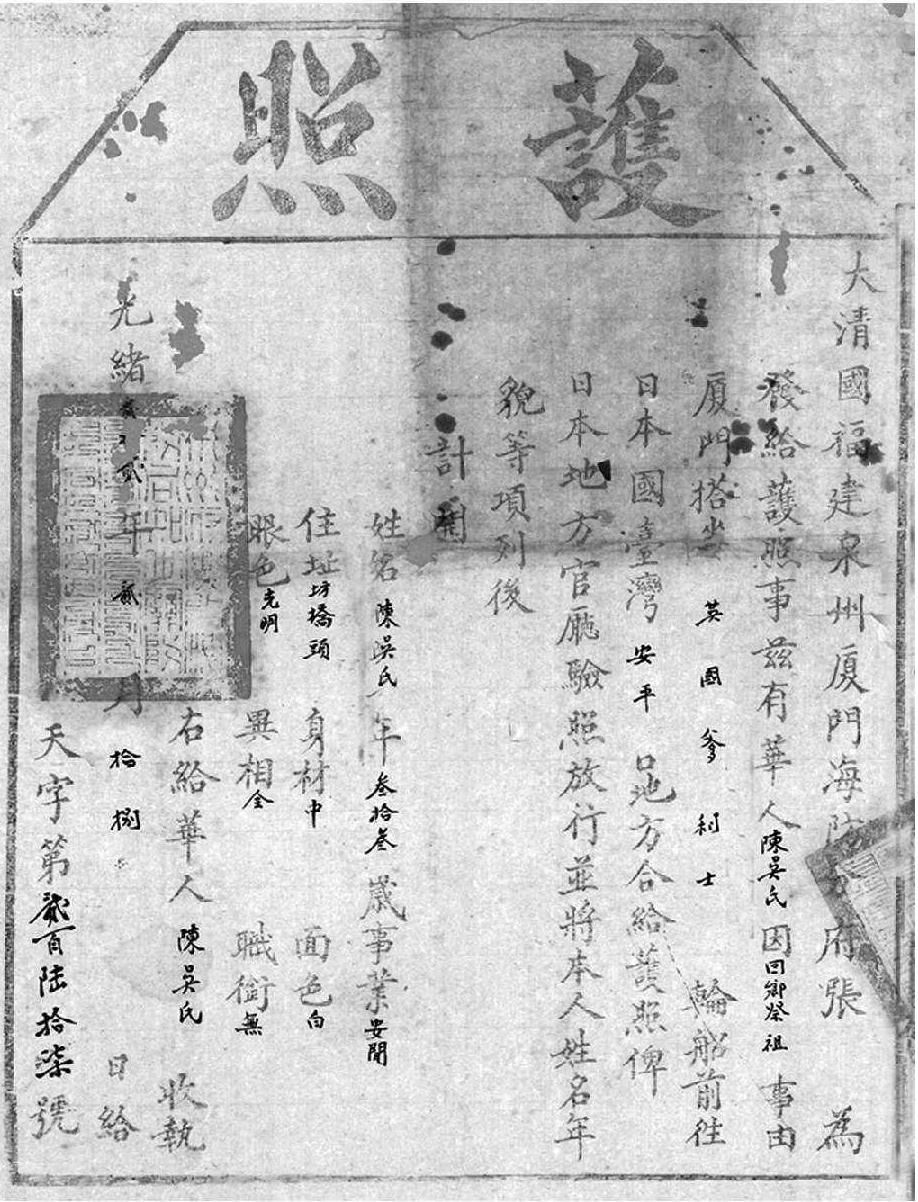 護照
大清國福建泉州厦門海防分府張 為
發給護照事茲有華人陳吳氏因回鄉祭祖事由
厦門搭坐英國爹利士輪船前往
日本國臺灣安平口地方合給護照俾
日本地方官廳驗照放行並將本人姓名年
貌等項列後
計開
姓名陳吳氏年叁拾叁歲事業安閒
住址坊橋頭身材中面色白
眼色光明異相全職銜無
右給華人陳吳氏收執
光緒貳年貳月拾捌日給
天字第貳百陸拾柒號